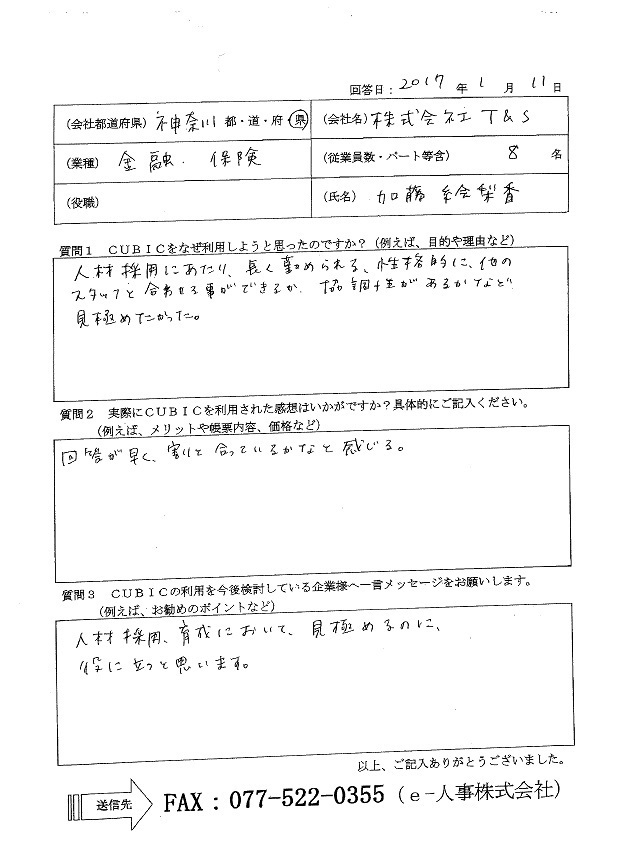 回答日：2017 年 1 月 11 日
（会社都道府県）神奈川 都・道・府・県
（会社名）株式会社 T&S
（業種） 金融・保険
（従業員数・パート等含） 8 名
（役職）
（氏名） 加藤 絵梨香
質問１ ＣＵＢＩＣをなぜ利用しようと思ったのですか？（例えば、目的や理由など）
人材採用にあたり、長く勤められる、性格的に、他の
スタッフと合わせる事ができるか、協調性があるかなど
見極めたかった。
質問２ 実際にＣＵＢＩＣを利用された感想はいかがですか？具体的にご記入ください。
（例えば、メリットや帳票内容、価格など）
回答が早く、割と合っているかなと感じる。
質問３ ＣＵＢＩＣの利用を今後検討している企業様へ一言メッセージをお願いします。
（例えば、お勧めのポイントなど）
人材採用、育成において、見極めるのに、
役に立つと思います。
以上、ご記入ありがとうございました。
送信先 FAX：077-522-0355（ｅ－人事株式会社）